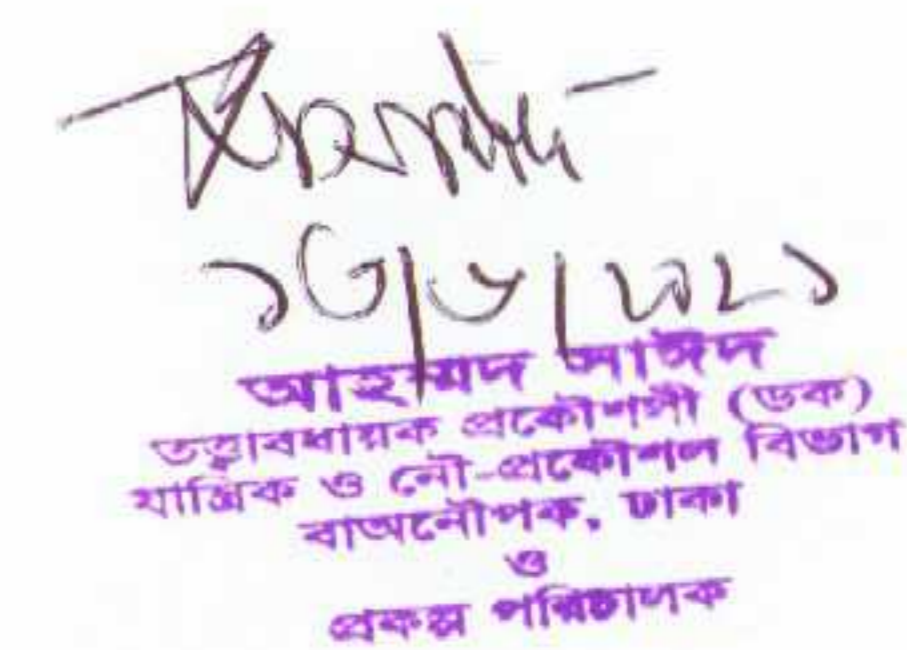 আহম্মদ সাঈদ
তত্ত্বাবধায়ক প্রকৌশলী (ডক)
যান্ত্রিক ও নৌ-প্রকৌশল বিভাগ
বাঅনৌপক, ঢাকা
ও
প্রকল্প পরিচালক